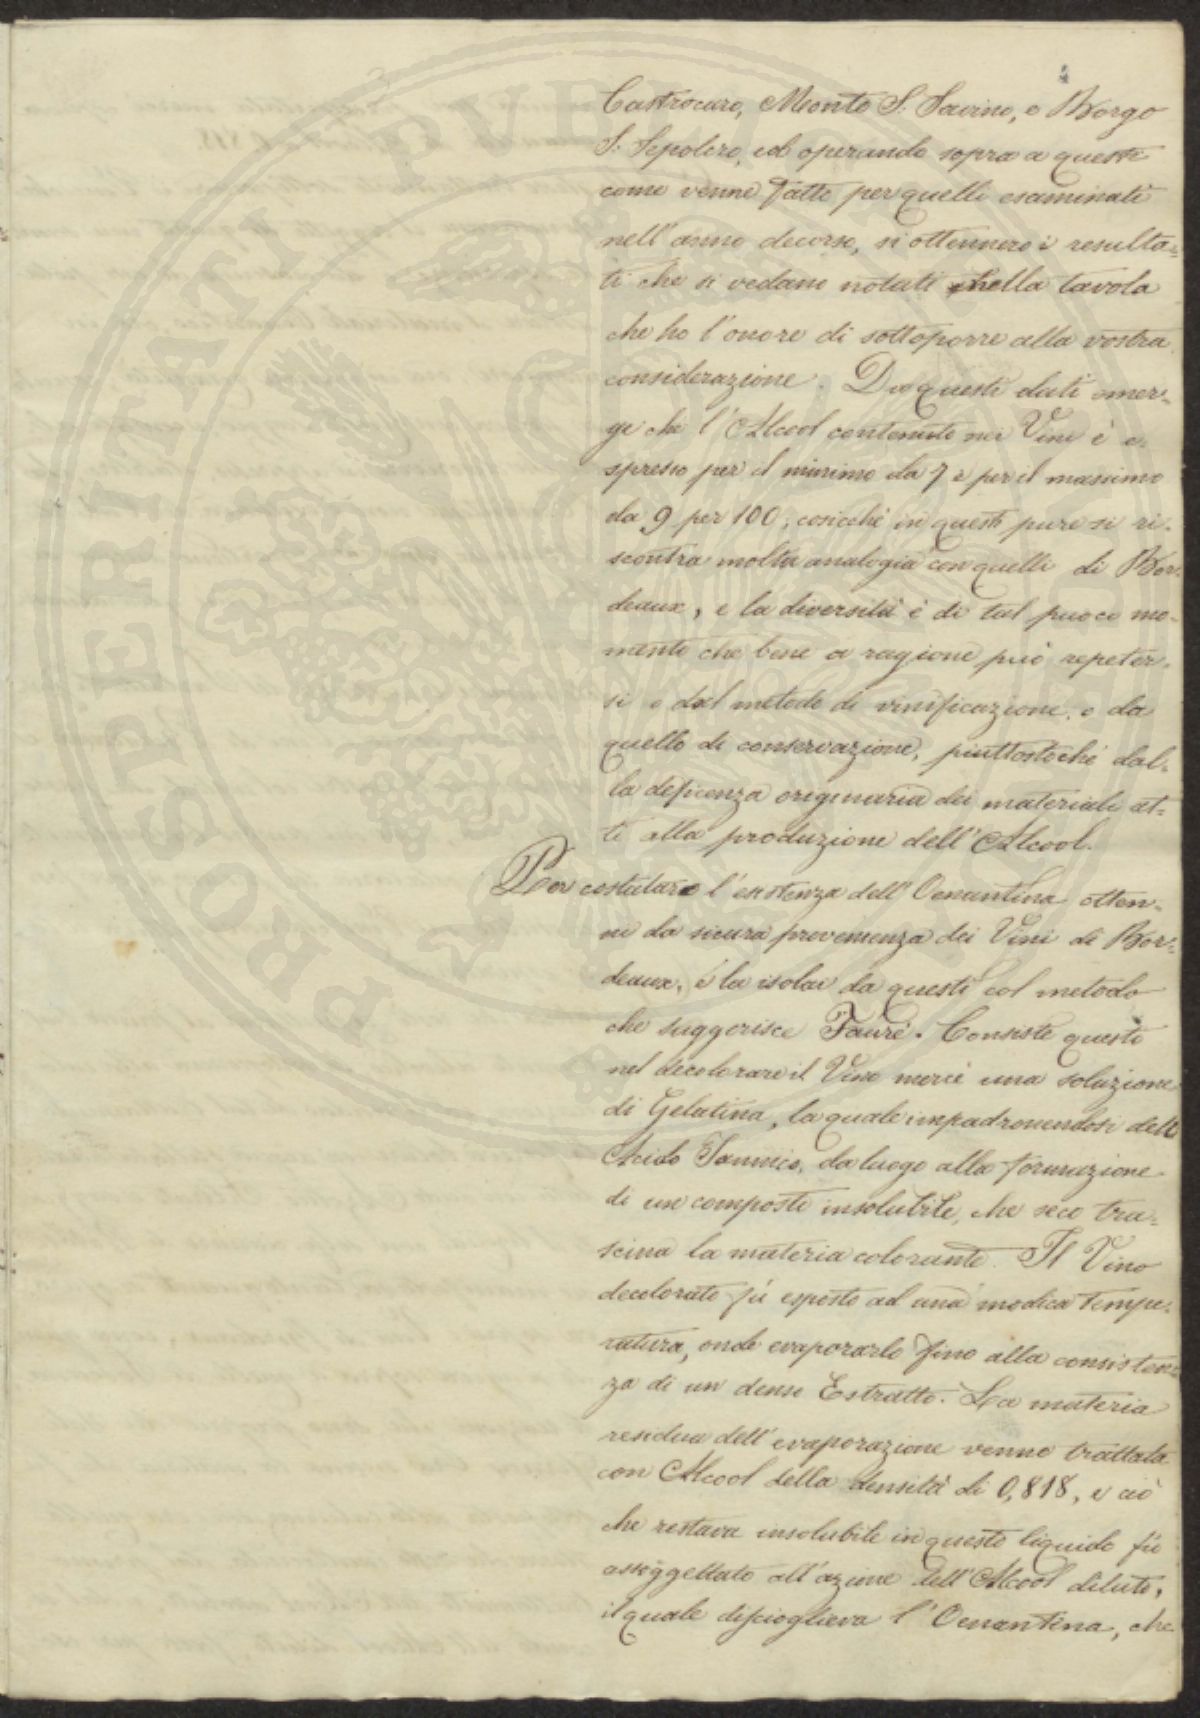 Castrocaro, Monte S. Savino, e Borgo
S. Sepolcro, ed operando sopra a questi
come venne fatto per quelli esaminati
nell'anno decorso, si ottennero i resulta=
ti che si vedano notati nella tavola
che ho l'onore di sottoporre alla vostra
considerazione. Da questi dati emer=
ge che l'Alcool contenuto nei Vini è e=
spresso per il minimo da 7 e per il massimo
da 9 per 100, cosicchè in questi pure si ri=
scontra molta analogia con quelli di Bor=
deaux, e la diversità è di tal poco mo=
mento che bene a ragione può repeter=
si o dal metodo di vinificazione, o da
quello di conservazione, piuttostochè dal=
la deficenza originaria dei materiali at=
ti alla produzione dell'Alcool.
Per costatare l'esistenza dell'Oenantina otten=
ni da sicura provenienza dei Vini di Bor=
deaux, e la isolai da questi col metodo
che suggerisce Fauré. Consiste questo
nel decolorare il Vino mercè una soluzione
di Gelatina, la quale impadronendosi dell
Acido Tannico, da luogo alla formazione
di un composto insolubile, che seco tra=
scina la materia colorante. Il Vino
decolorato fù esposto ad una modica tempe=
ratura, onde evaporarlo fino alla consisten=
za di un denso Estratto. La materia
residua dell'evaporazione venne trattata
con Alcool della densità di 0,818, e ciò
che restava insolubile in questo liquido fù
assoggettato all'azione dell'Alcool diluto,
il quale discioglieva l'Oenantina, che
PROSPERITATI PUBLICAE